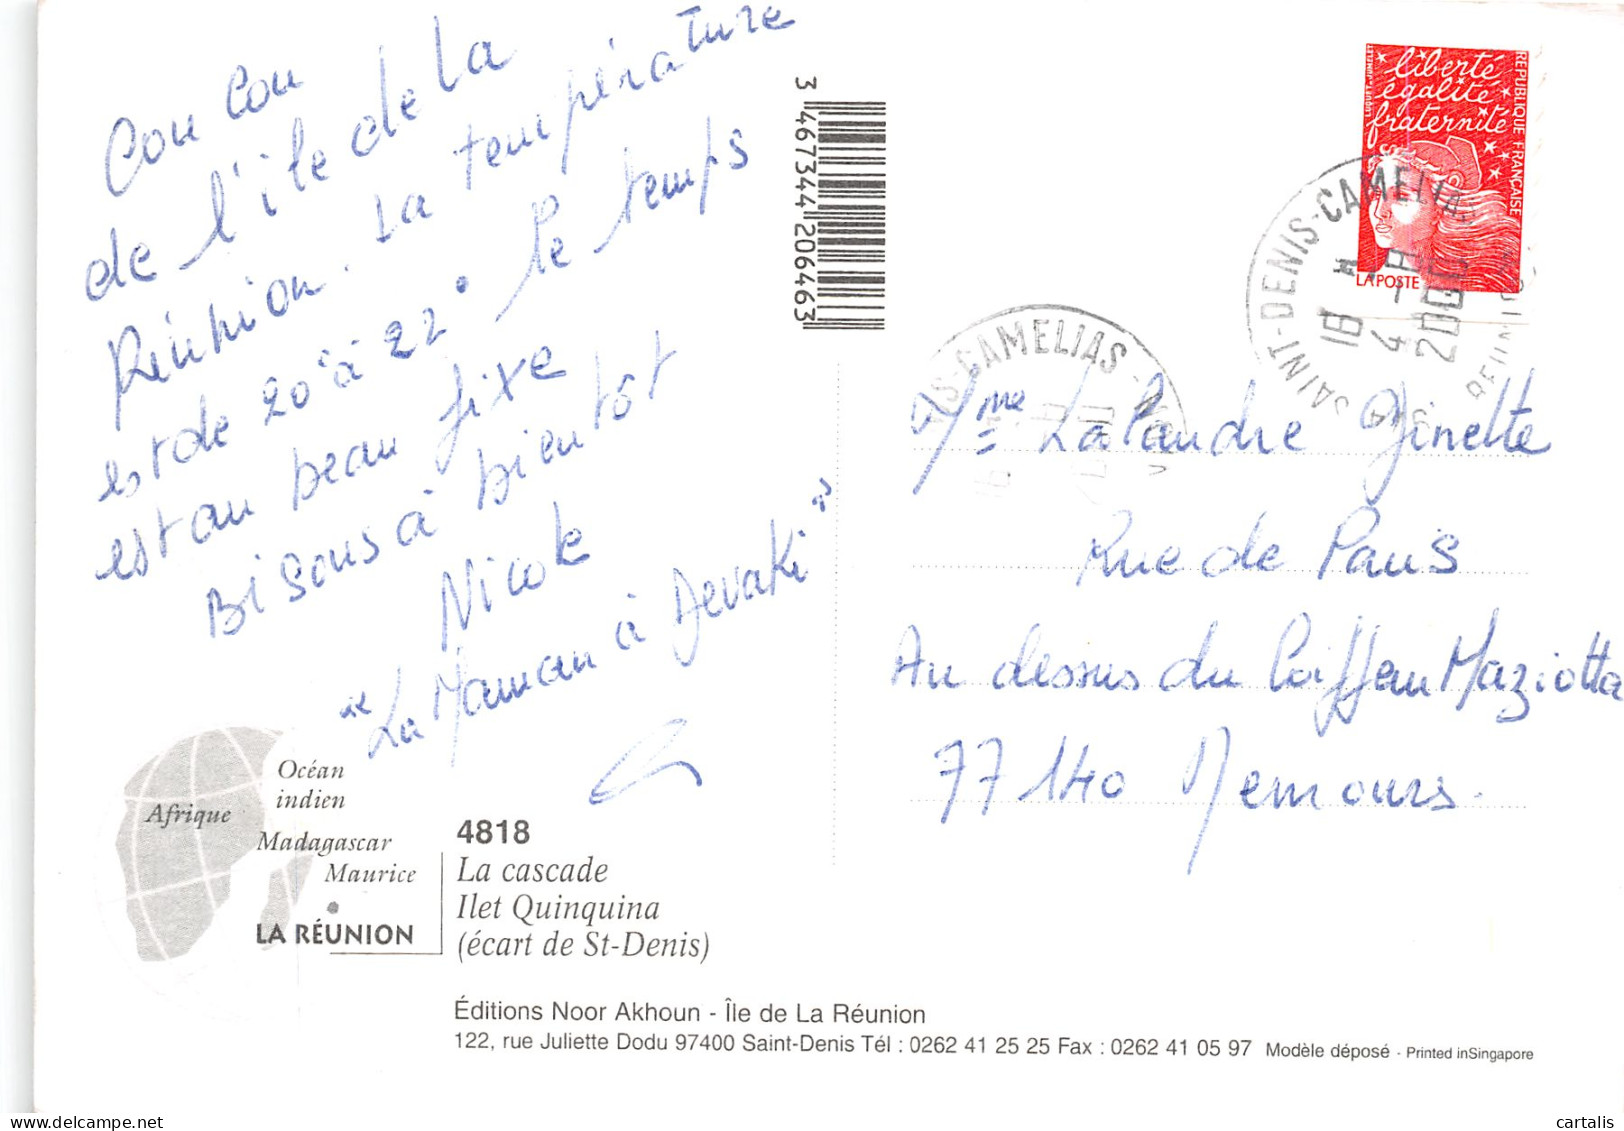 Cou Cou
de l'île de la
Réunion. La température
est de 20° à 22° le temps
est au beau fixe
Bisous à bientot
Nicole
"La Maman à Devaki"
3 467344 206463
liberté
égalité
fraternité
REPUBLIQUE FRANÇAISE
LA POSTE
SAINT-DENIS-CAMELIAS
18 H
4 -
200
REUNION
IS-CAMELIAS
Mme La Paudre Ginette
Rue de Paris
Au dessus du Coiffeur Maziotta
77140 Nemours.
Afrique
Océan
indien
Madagascar
Maurice
LA RÉUNION
4818
La cascade
Ilet Quinquina
(écart de St-Denis)
Éditions Noor Akhoun - Île de La Réunion
122, rue Juliette Dodu 97400 Saint-Denis Tél : 0262 41 25 25 Fax : 0262 41 05 97 Modèle déposé - Printed inSingapore
cartalis